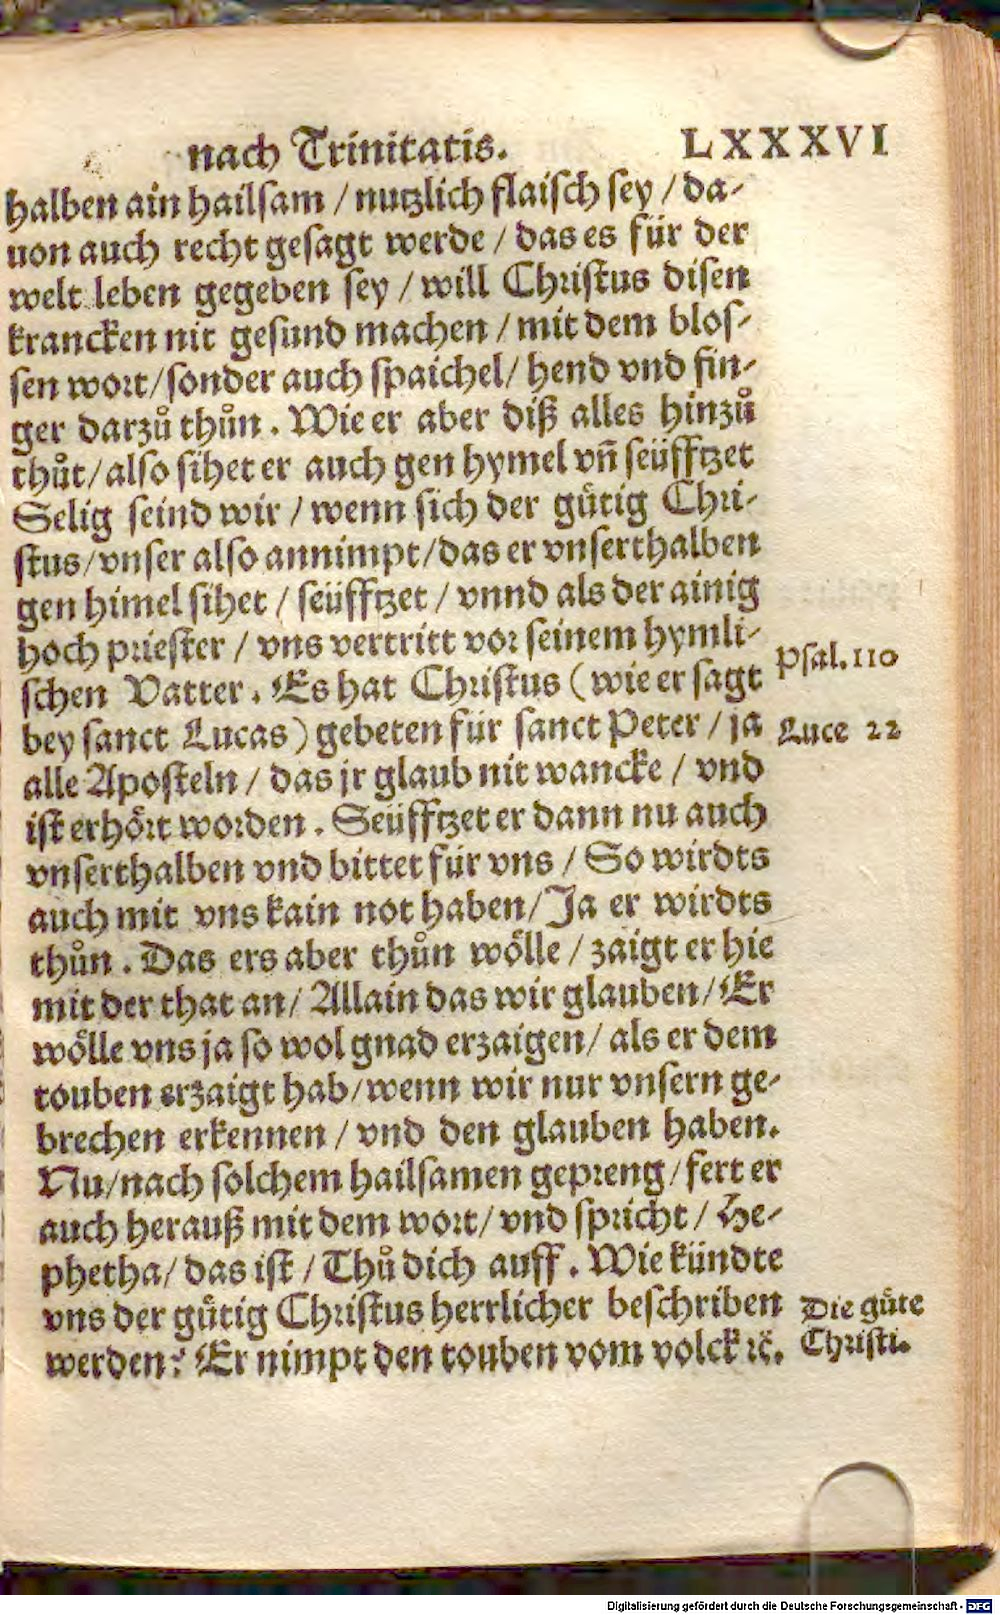 nach Trinitatis. LXXXVI
halben ain hailsam / nutzlich flaisch sey / da-
uon auch recht gesagt werde / das es für der
welt leben gegeben sey / will Christus disen
krancken nit gesund machen / mit dem blos-
sen wort / sonder auch spaichel / hend vnd fin-
ger darzů thůn. Wie er aber diß alles hinzů
thůt / also sihet er auch gen hymel vñ seüfftzet
Selig seind wir / wenn sich der gütig Chri-
stus / vnser also annimpt / das er vnserthalben
gen himel sihet / seüfftzet / vnnd als der ainig
hoch priester / vns vertritt vor seinem hymli-
schen Vatter. Es hat Christus (wie er sagt
Psal. 110
bey sanct Lucas) gebeten für sanct Peter / ja
Luce 22
alle Aposteln / das jr glaub nit wancke / vnd
ist erhört worden. Seüfftzet er dann nu auch
vnserthalben vnd bittet für vns / So wirdts
auch mit vns kain not haben / Ja er wirdts
thůn. Das ers aber thůn wölle / zaigt er hie
mit der that an / Allain das wir glauben / Er
wölle vns ja so wol gnad erzaigen / als er dem
touben erzaigt hab / wenn wir nur vnsern ge-
brechen erkennen / vnd den glauben haben.
Nu / nach solchem hailsamen gepreng / fert er
auch herauß mit dem wort / vnd spricht / He-
phetha / das ist / Thů dich auff. Wie kündte
vns der gütig Christus herrlicher beschriben
Die güte
werden? Er nimpt den touben vom volck ꝛc.
Christi.
Digitalisierung gefördert durch die Deutsche Forschungsgemeinschaft - DFG